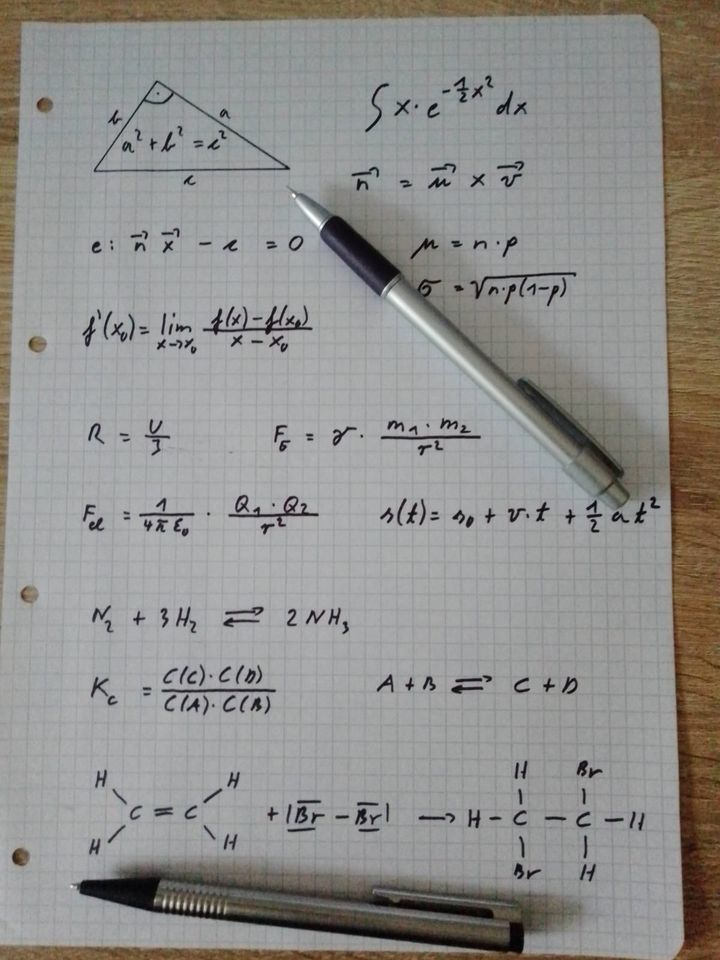 b a
a² + b² = c²
c
∫ x · e^(-1/2 x²) dx
n⃗ = u⃗ × v⃗
e: n⃗ x⃗ - c = 0
μ = n · p
σ = √(n·p(1-p))
f'(x₀) = lim x→x₀ (f(x) - f(x₀))/(x - x₀)
R = U/I
F_G = γ · (m₁ · m₂)/r²
F_el = 1/(4πε₀) · (Q₁ · Q₂)/r²
s(t) = s₀ + v · t + 1/2 a t²
N₂ + 3H₂ ⇌ 2NH₃
K_c = (C(C) · C(D))/(C(A) · C(B))
A + B ⇌ C + D
H H H Br
C = C + |Br - Br| → H - C - C - H
H H Br H